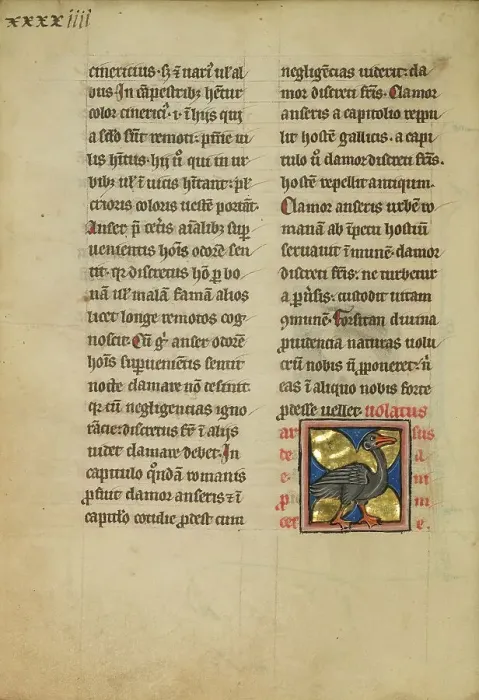 xxxxiiii
cinericius · ſʒ ⁊ uariꝰ ul̓ al
bus · In cāpeſtribꝫ hētur
color cinericiꝰ · i · ī hijs qui
a ſc̄lo ſūt remoti :
lis hītus · hij ū̓ qui in ur
bibꝫ ul̓ ī uicis hītant :
crioris coloris ueſtē portāt ·
Anſer p̄ cet̓is aīalibꝫ ſup
uenientis hoīs odorē ſen
tit · qr diſcretus hō ꝑ bo
nā ul̓ malā famā alios
licet longe remotos cog
noſcit · Cū gͦ anſer odorē
hoīs ſupuenientis ſentit
nocte clamare nō ceſſat ·
qr cū negligencias igno
rācie : diſcretus fr̄ ī alijs
uidet clamare debet · In
capitulo qͦndā romanis
ꝓfuit clamor anſeris ⁊ ī
capitl̓o cotidie ꝓdeſt cum
negligēcias uiderit : cla
mor diſcreti fr̄is · Clamor
anſeris a capitolio reppu
lit hoſtē gallicis · a capi
tulo ū̓ clamor diſcreti fr̄is ·
hoſtē repellit antiqum ·
Clamor anſeris urbē ro
manā ab īpetu hoſtiū
ſeruauit īmunē · clamor
diſcreti fr̄is : ne turbetur
a p̓uiſis : cuſtodit uitam
ꝯmunē · Forſitan diuina
ꝓuidentia naturas uolu
crū nobis ñ ꝓponeret : ñ
eas ī aliquo nobis forte
ꝓdeſſe uellet · uolatus
ar ſus
de a
e · m
ꝓ m
cet e ·